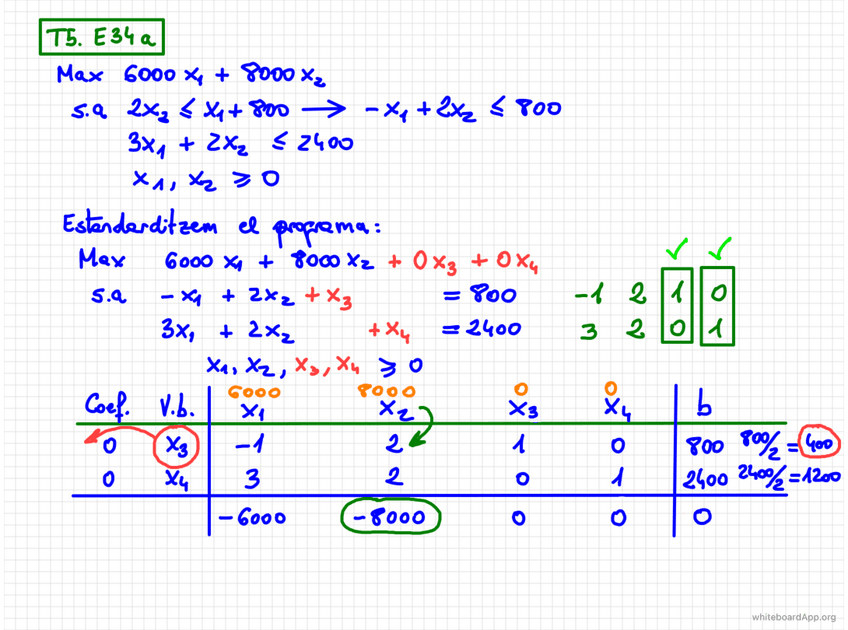 T5. E34a
Max 6000 x₁ + 8000 x₂
s.a 2x₂ ≤ x₁ + 800 → -x₁ + 2x₂ ≤ 800
3x₁ + 2x₂ ≤ 2400
x₁, x₂ ≥ 0
Estandarditzem el programa:
Max 6000 x₁ + 8000 x₂ + 0x₃ + 0x₄
s.a -x₁ + 2x₂ + x₃ = 800 -1 2 1 0
3x₁ + 2x₂ + x₄ = 2400 3 2 0 1
x₁, x₂, x₃, x₄ ≥ 0
6000 8000 0 0
Coef. V.b. x₁ x₂ x₃ x₄ b
0 x₃ -1 2 1 0 800 800/2 = 400
0 x₄ 3 2 0 1 2400 2400/2 = 1200
-6000 -8000 0 0 0
whiteboardApp.org